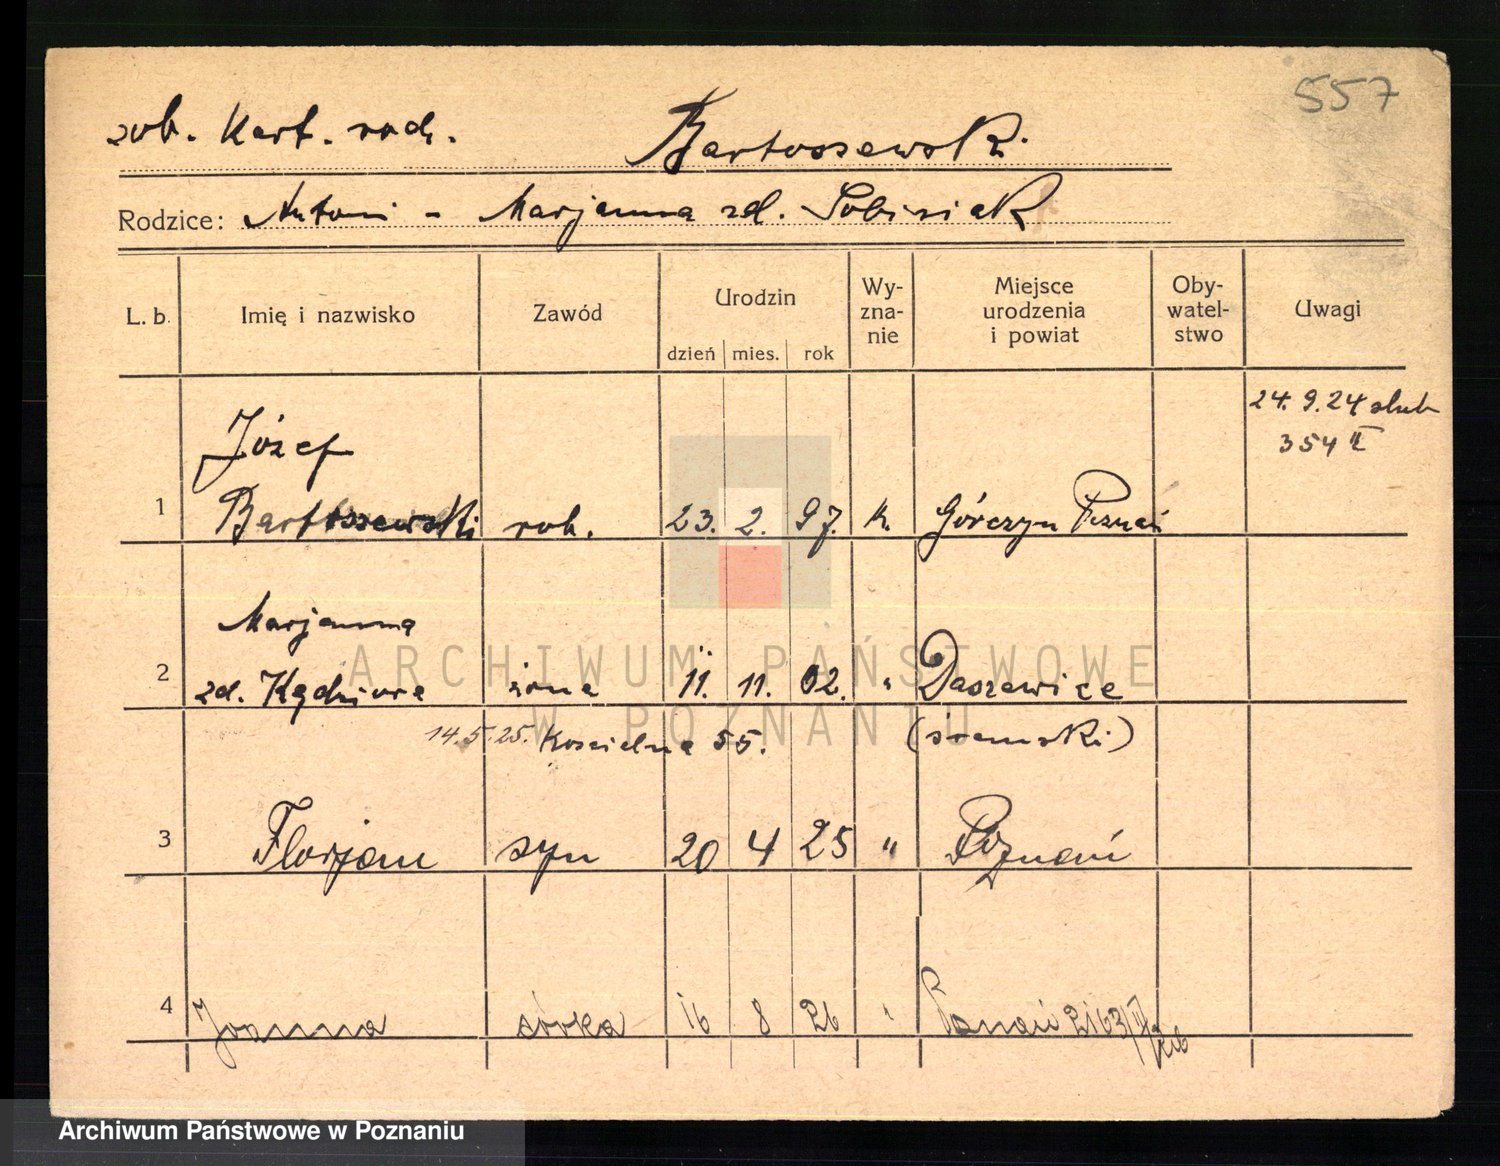 557
zob. Kart. rodz. Bartoszewski
Rodzice: Antoni - Marjanna zd. Sobisiak
L. b. Imię i nazwisko Zawód Urodzin dzień mies. rok Wy-zna-nie Miejsce urodzenia i powiat Oby-watel-stwo Uwagi
24. 9. 24 slub
354 II
Józef
1 Bartoszewski rob. 23. 2. 97. k. Górczyn Poznań
Marjanna
2 zd. Kądziora żona 11. 11. 02. " Daszewice
14.5.25. Kościelna 55. (śremski)
3 Florjan syn 20 4 25 " Poznań
4 Joanna córka 16 8 26 " Poznań 2163/
ARCHIWUM PAŃSTWOWE
W POZNANIU
Archiwum Państwowe w Poznaniu